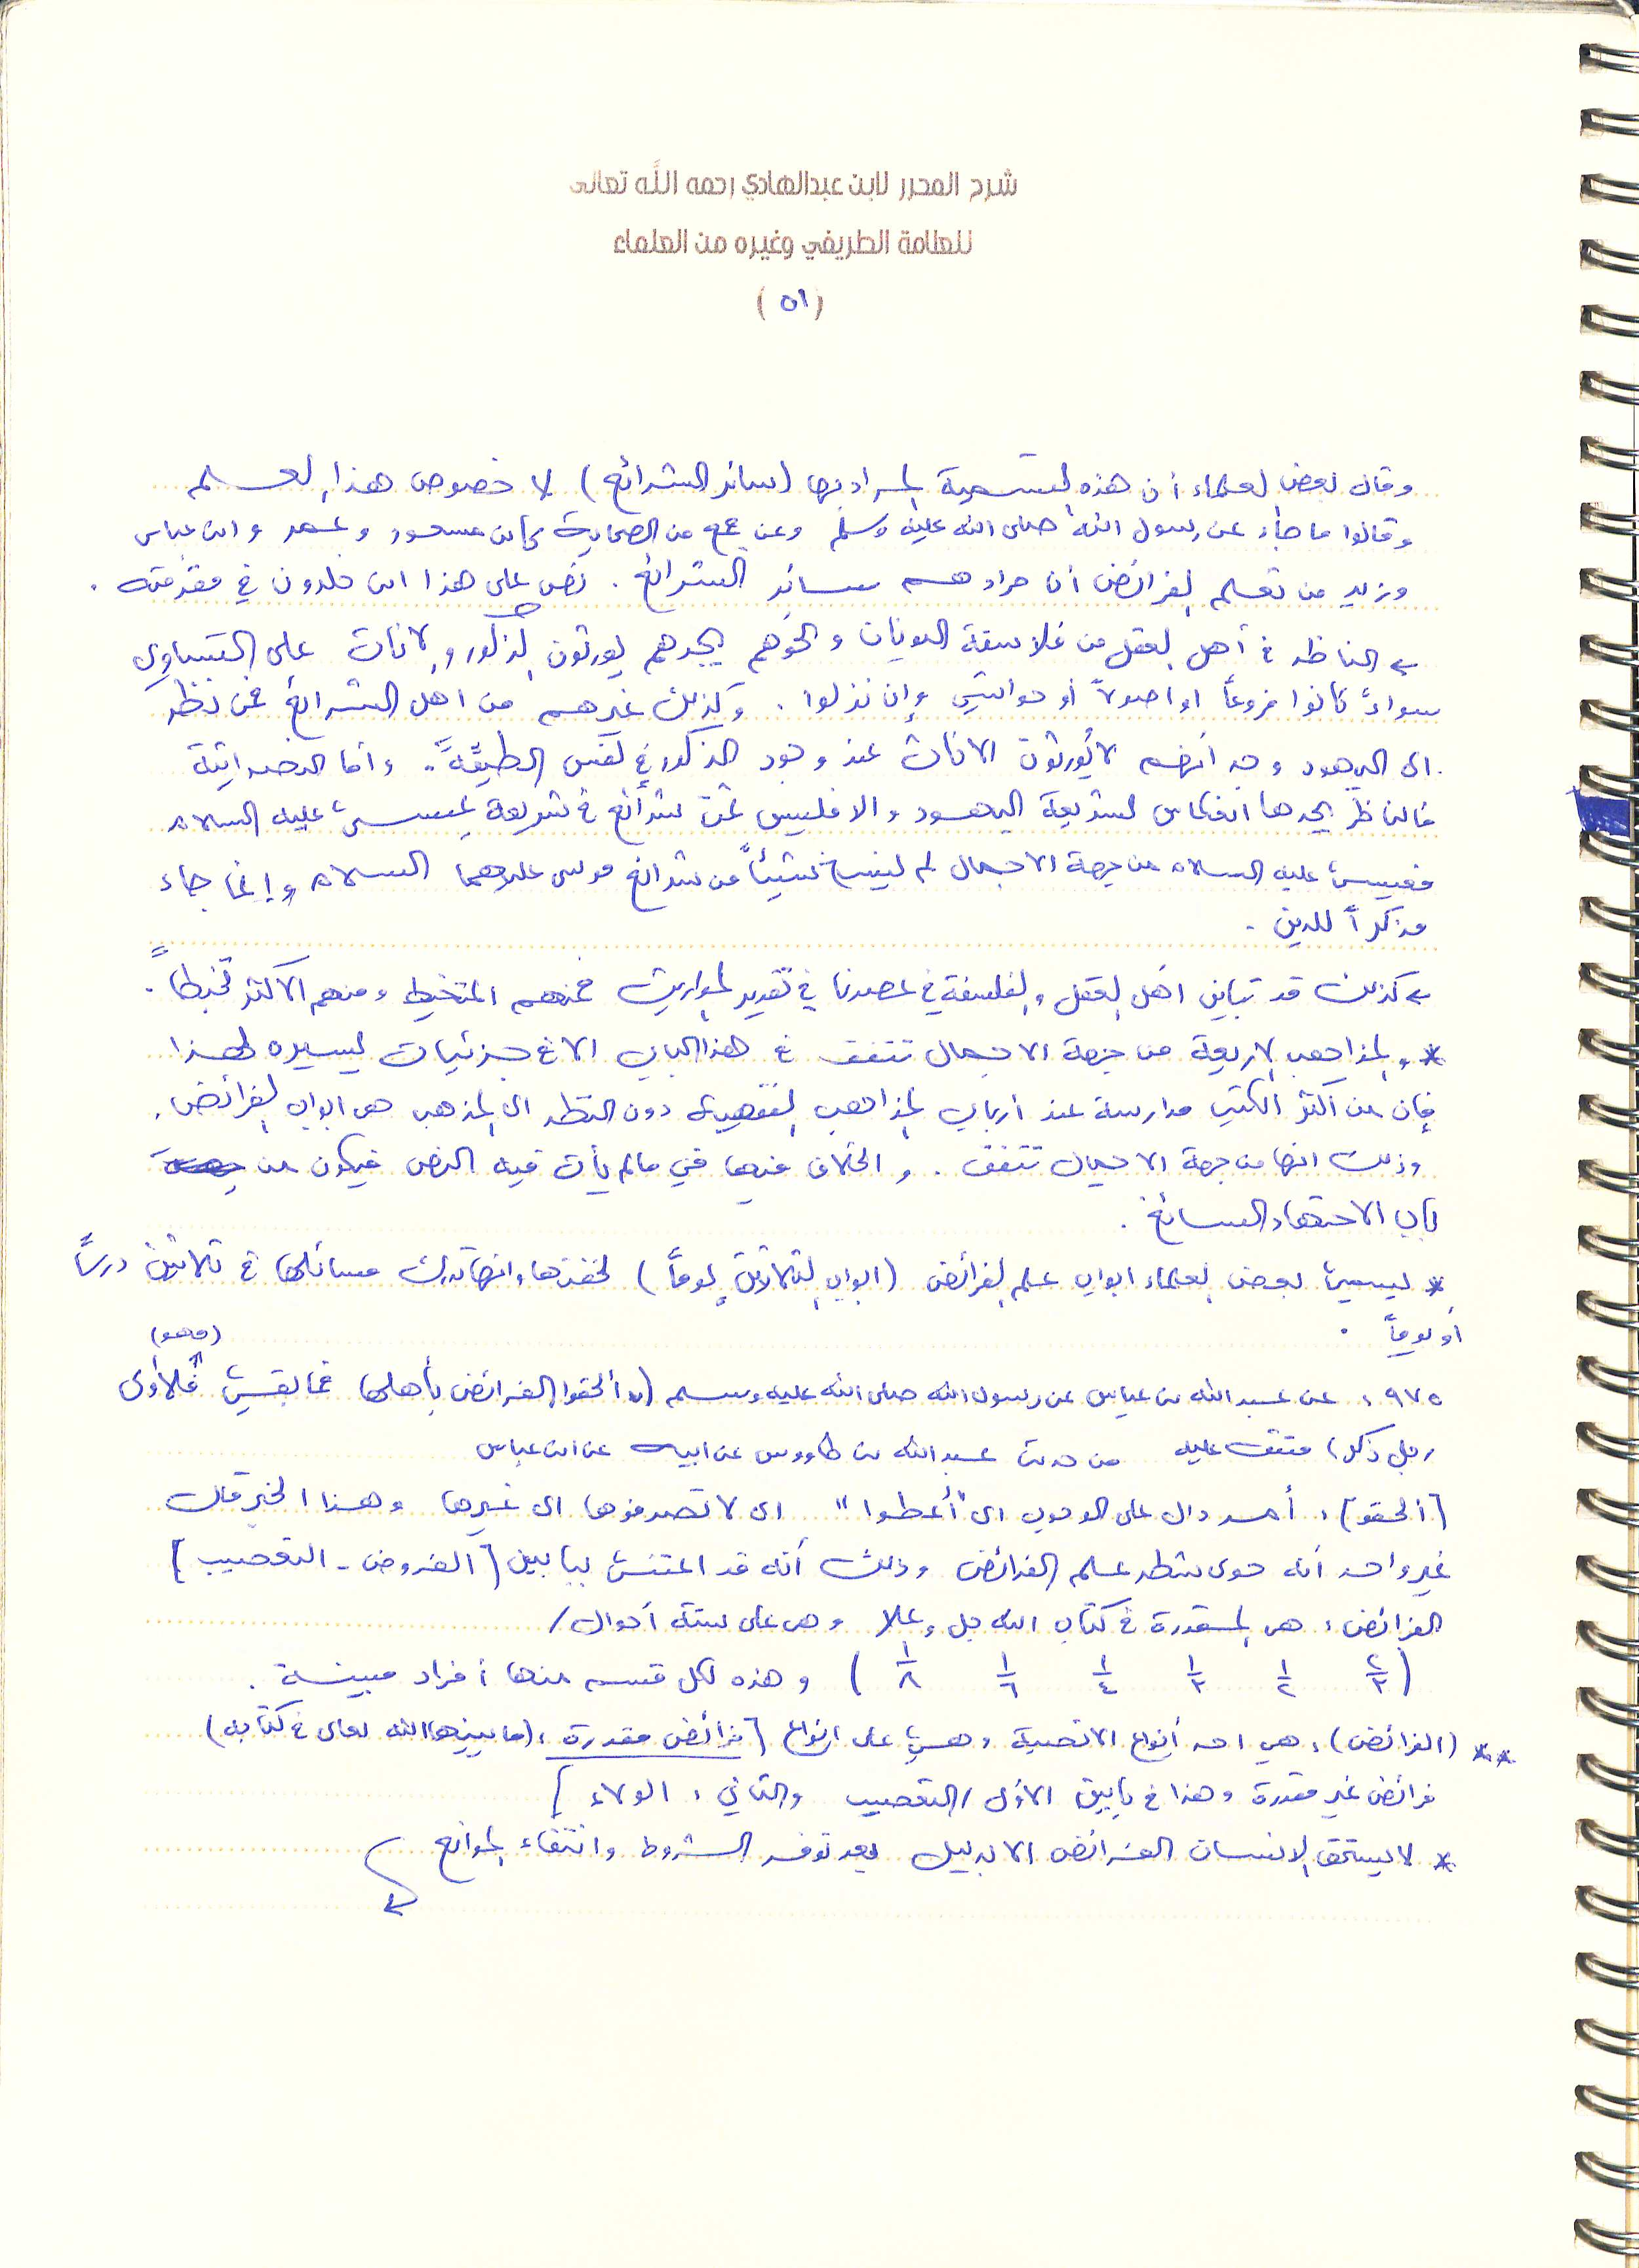 شرح المحرر لابن عبدالهادي رحمه الله تعالى
للعلامة الطريفي وغيره من العلماء
(٥١)
وقال بعض العلماء أن هذه التسمية المراد بها (سائر الشرائع) لا خصوص هذا العلم
وقالوا ما جاء عن رسول الله صلى الله عليه وسلم وعن جمع من الصحابة كابن مسعود وعمر وابن عباس
وزيد من تعلم الفرائض أن مرادهم سائر الشرائع . نص على هذا ابن خلدون في مقدمته .
← الناظر في أهل العقل من فلاسفة اليونان ونحوهم يجدهم يورثون الذكور والاناث على التساوي
سواءً كانوا فروعاً او اصولاً أو حواشي وإن نزلوا . وكذلك غيرهم من اهل الشرائع فمن نظر
الى اليهود وجد أنهم لا يُورثون الاناث عند وجود الذكور في نفس الطبقة . وأما النصرانية
فالناظر يجدها انعكاس لشريعة اليهود والا فليس ثمّ شرائع في شريعة عيسى عليه السلام
فعيسى عليه السلام من جهة الاجمال لم ينسخ شيئاً من شرائع موسى عليهما السلام وإنما جاء
مذكراً للدين .
← كذلك قد تباين أهل العقل والفلسفة في عصرنا في تقدير المواريث فمنهم المتخبط ومنهم الاكثر تخبطاً .
* والمذاهب الاربعة من جهة الاجمال تتفق في هذا الباب الا في جزئيات يسيره لهذا
فإن من اكثر الكتب مدارسة عند أرباب المذاهب الفقهية دون النظر الى المذهب هي ابواب الفرائض .
وذلك انها من جهة الاجمال تتفق . والخلاف فيها في مالم يأت فيه النص فيكون من
باب الاجتهاد السائغ .
* يسمي بعض العلماء ابواب علم الفرائض (ابواب الثلاثين يوماً) لخفتها وانها تدرك مسائلها في ثلاثين درساً
أو يوماً .
(فهو)
٩٧٥ : عن عبدالله بن عباس عن رسول الله صلى الله عليه وسلم (( ألحقوا الفرائض بأهلها فما بقي فلأولى
رجل ذكر) متفق عليه من حديث عبدالله بن طاووس عن ابيه عن ابن عباس
[ألحقو] : أمر دال على الوجوب اي "أعطوا" اي لا تصرفوها الى غيرها وهذا الخبر قال
غير واحد أنه حوى شطر علم الفرائض وذلك أنه قد اعتنى ببابين [الفروض - التعصيب]
الفرائض : هي المقدرة في كتاب الله جل وعلا وهي على ستة أحوال /
( ٢/٣ ١/٢ ١/٣ ١/٤ ١/٦ ١/٨ ) وهذه لكل قسم منها أفراد مبينة .
** (الفرائض) : هي احد أنواع الانصبة وهي على انواع [فرائض مقدرة : (ما بينها الله تعالى في كتابه)
فرائض غير مقدرة وهذا في بابين الأول / التعصيب والثاني : الولاء ]
* لا يستحق الانسان الفرائض الا بدليل بعد توفر الشروط وانتفاء الموانع